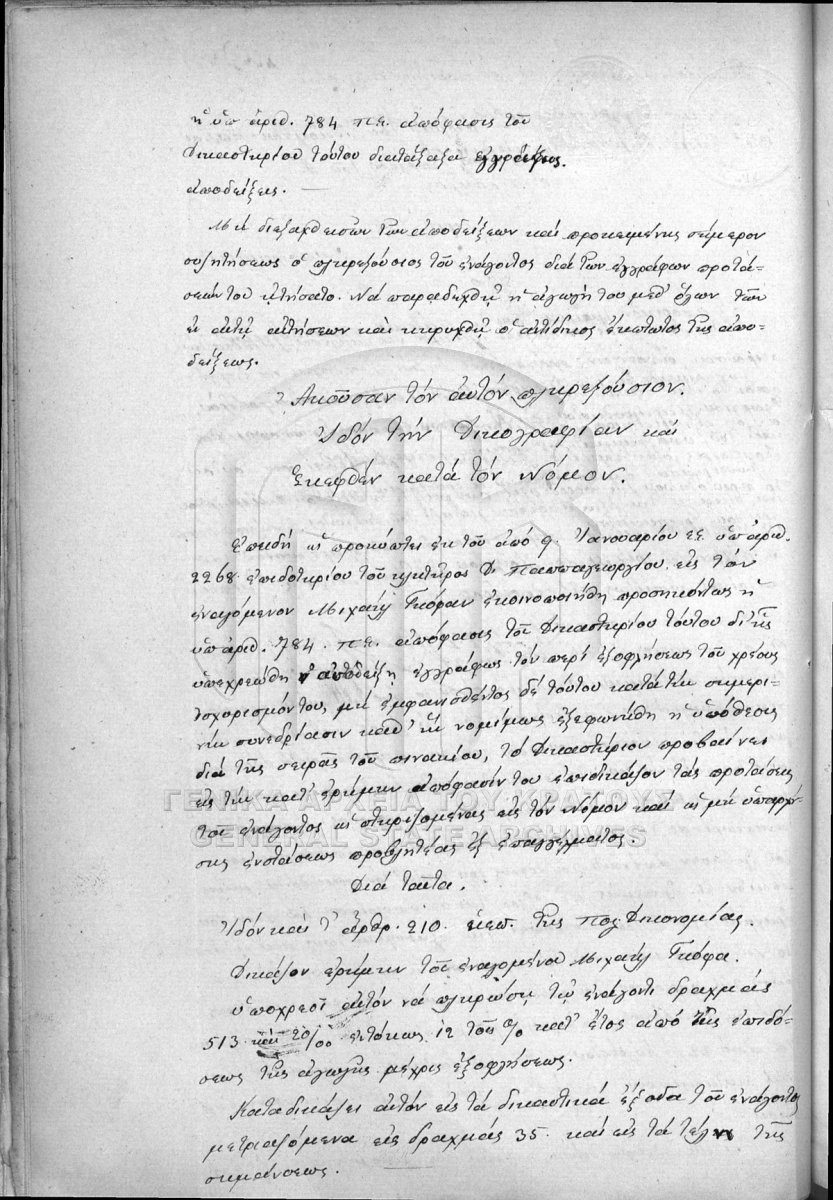 ἡ ὑπ ἀριθ. 784 π.ἔ. ἀπόφασις τοῦ
Δικαστηρίου τούτου διατάξασα ἐγγράφους
ἀποδείξεις.
Μὴ διεξαχθεισῶν τῶν ἀποδείξεων καὶ προκειμένης σήμερον
συζητήσεως ὁ πληρεξούσιος τοῦ ἐνάγοντος διὰ τῶν ἐγγράφων προτά-
σεών του ᾐτήσατο. Νὰ παραδεχθῇ ἡ ἀγωγή του μεθ' ὅλων τῶν
ἐν αὐτῇ αἰτήσεων καὶ κηρυχθῇ ὁ ἀντίδικος ἔκπτωτος τῆς ἀπο-
δείξεως.
Ἀκοῦσαν τὸν αὐτὸν πληρεξούσιον.
Ἰδὸν τὴν Δικογραφίαν καὶ
Σκεφθὲν κατὰ τὸν Νόμον.
Ἐπειδὴ ὡς προκύπτει ἐκ τοῦ ἀπὸ 9 Ἰανουαρίου ἐ.ἔ. ὑπ' ἀριθ.
2268 ἐπιδοτηρίου τοῦ κλητῆρος Δ. Παππαγεωργίου εἰς τὸν
ἐναγόμενον Μιχαὴλ Γκόφαν ἐκοινοποιήθη προσηκόντως ἡ
ὑπ' ἀριθ. 784 π.ἔ. ἀπόφασις τοῦ Δικαστηρίου τούτου δι' ἧς
ὑπεχρεώθη ν' ἀποδείξῃ ἐγγράφως τὸν περὶ ἐξοφλήσεως τοῦ χρέους
ἰσχυρισμόν του, μὴ ἐμφανισθέντος δὲ τούτου κατὰ τὴν σημερι-
νὴν συνεδρίασιν καθ' ἣν νομίμως ἐξεφωνήθη ἡ ὑπόθεσις
διὰ τῆς σειρᾶς τοῦ πινακίου, τὸ Δικαστήριον προβαίνει
εἰς τὴν κατ' ἐρήμην ἀπόφασίν του ἐπιδικάζον τὰς προτάσεις
τοῦ ἐνάγοντος ὡς στηριζομένας εἰς τὸν Νόμον καὶ ὡς μὴ ὑπαρχού-
σης ἐνστάσεως προβλητέας ἐξ ἐπαγγέλματος.
Διὰ ταῦτα.
Ἰδὸν καὶ τ' ἄρθρ. 210. τῆς Πολ. Δικονομίας.
Δικάζον ἐρήμην τοῦ ἐναγομένου Μιχαὴλ Γκόφα.
Ὑποχρεοῖ αὐτὸν νὰ πληρώσῃ τῷ ἐνάγοντι δραχμὰς
513 καὶ 20/00 ἐντόκως 12 τοῖς % κατ' ἔτος ἀπὸ τῆς ἐπιδό-
σεως τῆς ἀγωγῆς μέχρις ἐξοφλήσεως.
Καταδικάζει αὐτὸν εἰς τὰ δικαστικὰ ἔξοδα τοῦ ἐνάγοντος
μετριαζόμενα εἰς δραχμὰς 35. καὶ εἰς τὰ τέλη τῆς
σημάνσεως.
ΓΕΝΙΚΑ ΑΡΧΕΙΑ ΤΟΥ ΚΡΑΤΟΥΣ
GENERAL STATE ARCHIVES